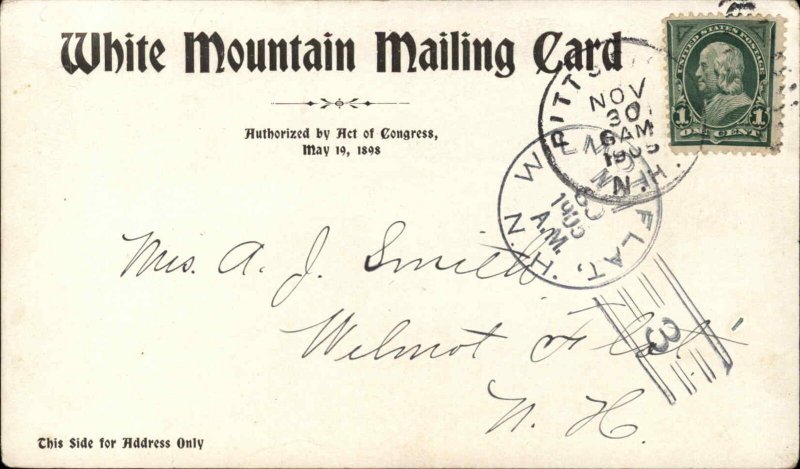 White Mountain Mailing Card
Authorized by Act of Congress,
May 19, 1898
UNITED STATES POSTAGE
1 1
ONE CENT
PITTS
NOV
30
6AM
1905
N.H.
WILMOT FLAT, N.H.
1905
A.M.
3
Mrs. A. J. Smith
Wilmot Flat
N. H.
This Side for Address Only